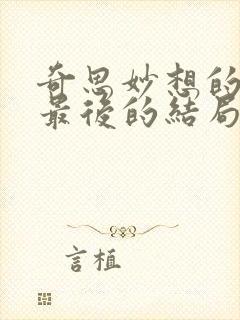 奇思妙想的
最後的結局
言植